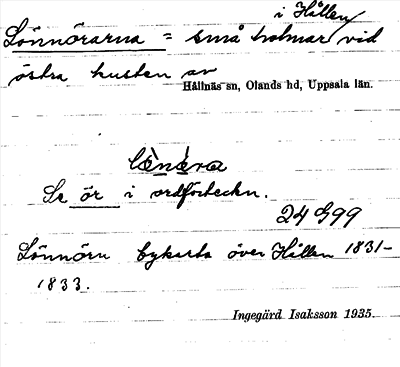 i Hållen
Lönnörarna = små holmar vid
östra kusten av
Hållnäs sn, Olands hd, Uppsala län.
Se ör i ordförteckn.
24 G99
Lönnörn bykarta över Hållen 1831-
1833.
Ingegärd Isaksson 1935.